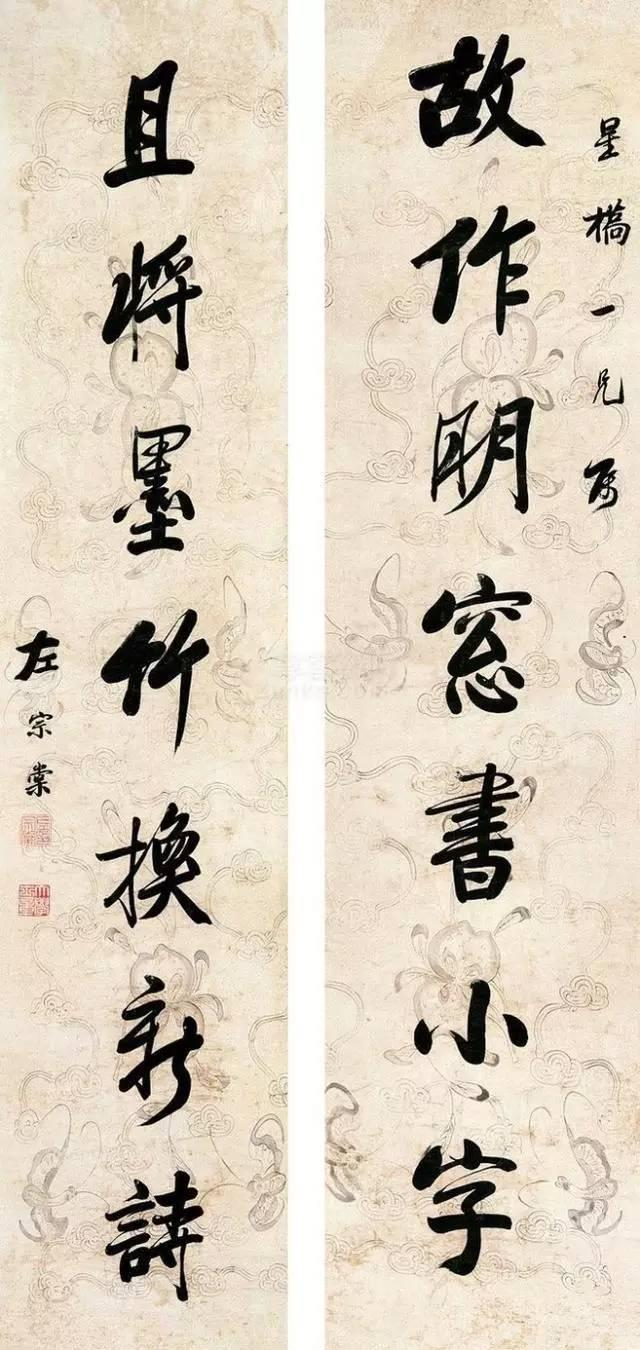 星橋一兄屬
故作明窓書小字
且将墨竹換新詩
左宗棠